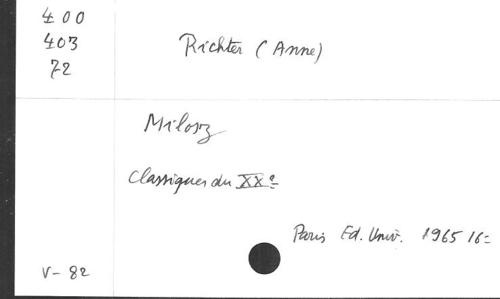 400
403
72
Richter (Anne)
Milosz
Classiques du XXe
Paris Ed. Univ. 1965 16=
V- 82